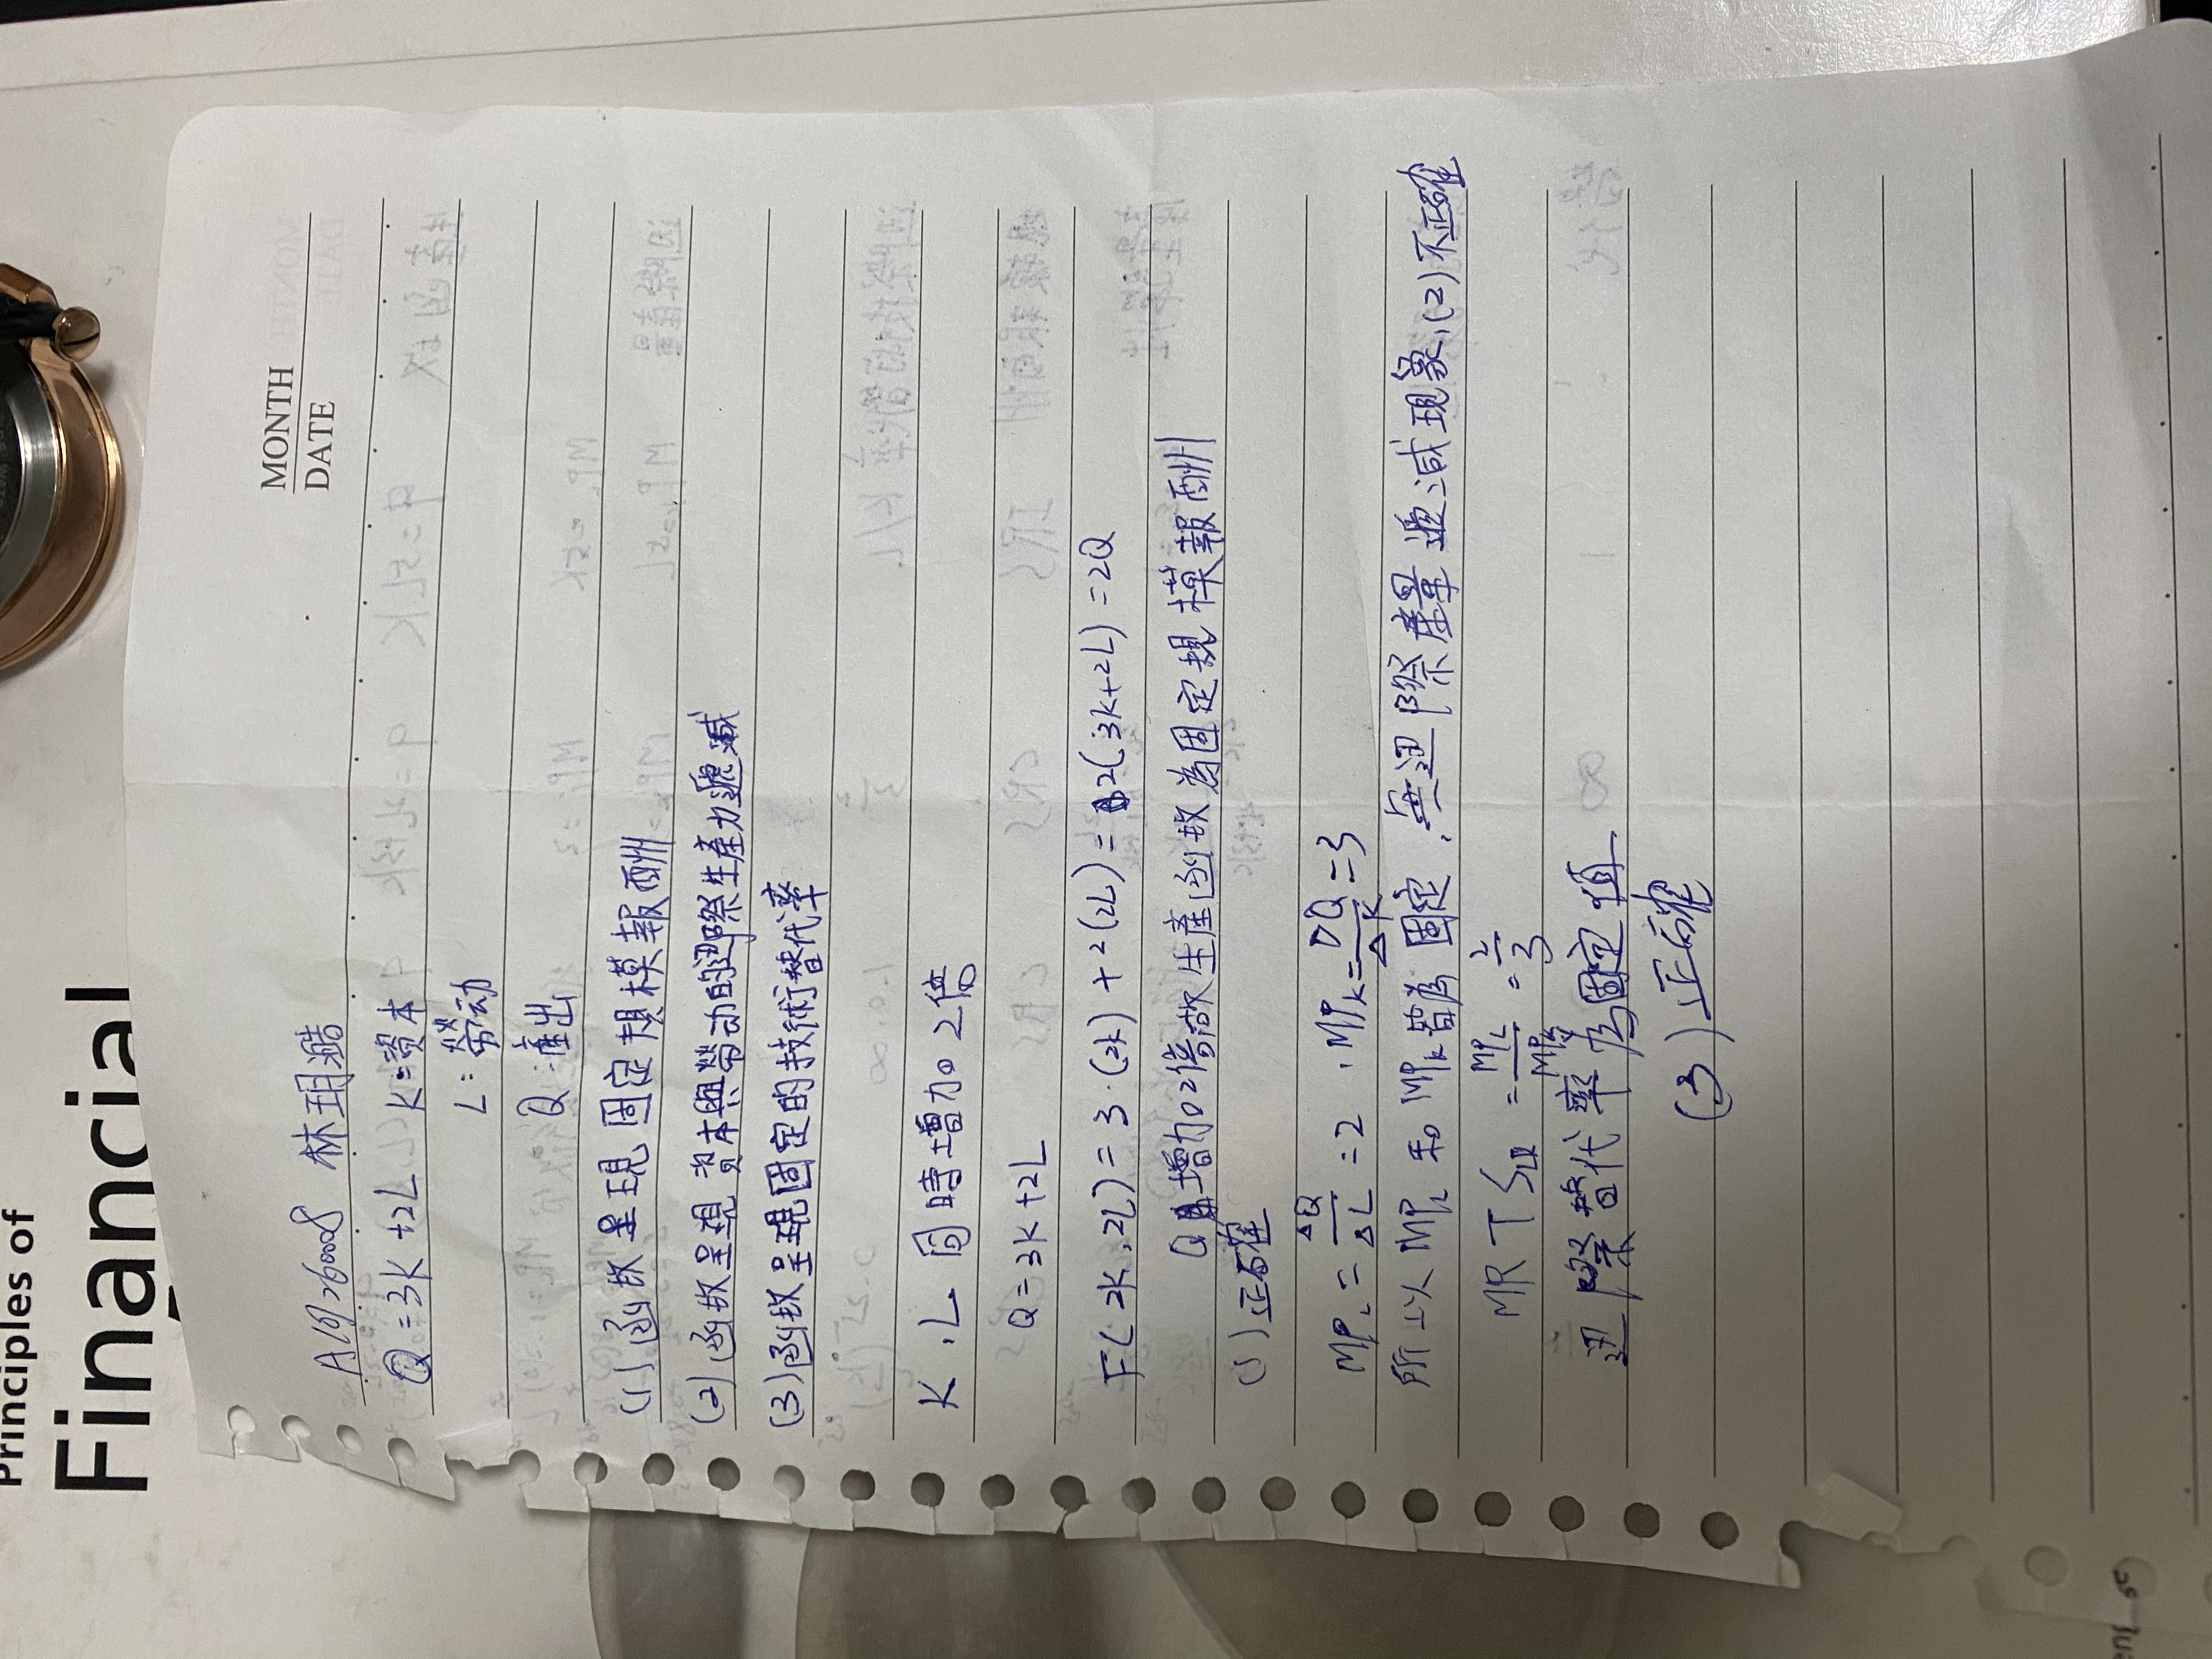 Principles of
Financial
MONTH
DATE
林玥澔
Q=3K+2L K=資本
L:勞动
Q:產出
(1)函數呈現固定規模報酬
(2)函數呈現資本與勞动的邊際生產力遞減
(3)函數呈現固定的技術替代率
K,L 同時增加2倍
Q=3K+2L
F(2K,2L)=3·(2K)+2(2L)=2(3K+2L)=2Q
Q增加2倍故生產函數為固定規模報酬
(1)正確
MPL=ΔQ/ΔL=2,MPK=ΔQ/ΔK=3
所以MPL和MPK皆為固定,無邊際產量遞減現象,(2)不正確
MRTSLK=MPL/MPK=2/3
邊際替代率為固定值
(3)正確